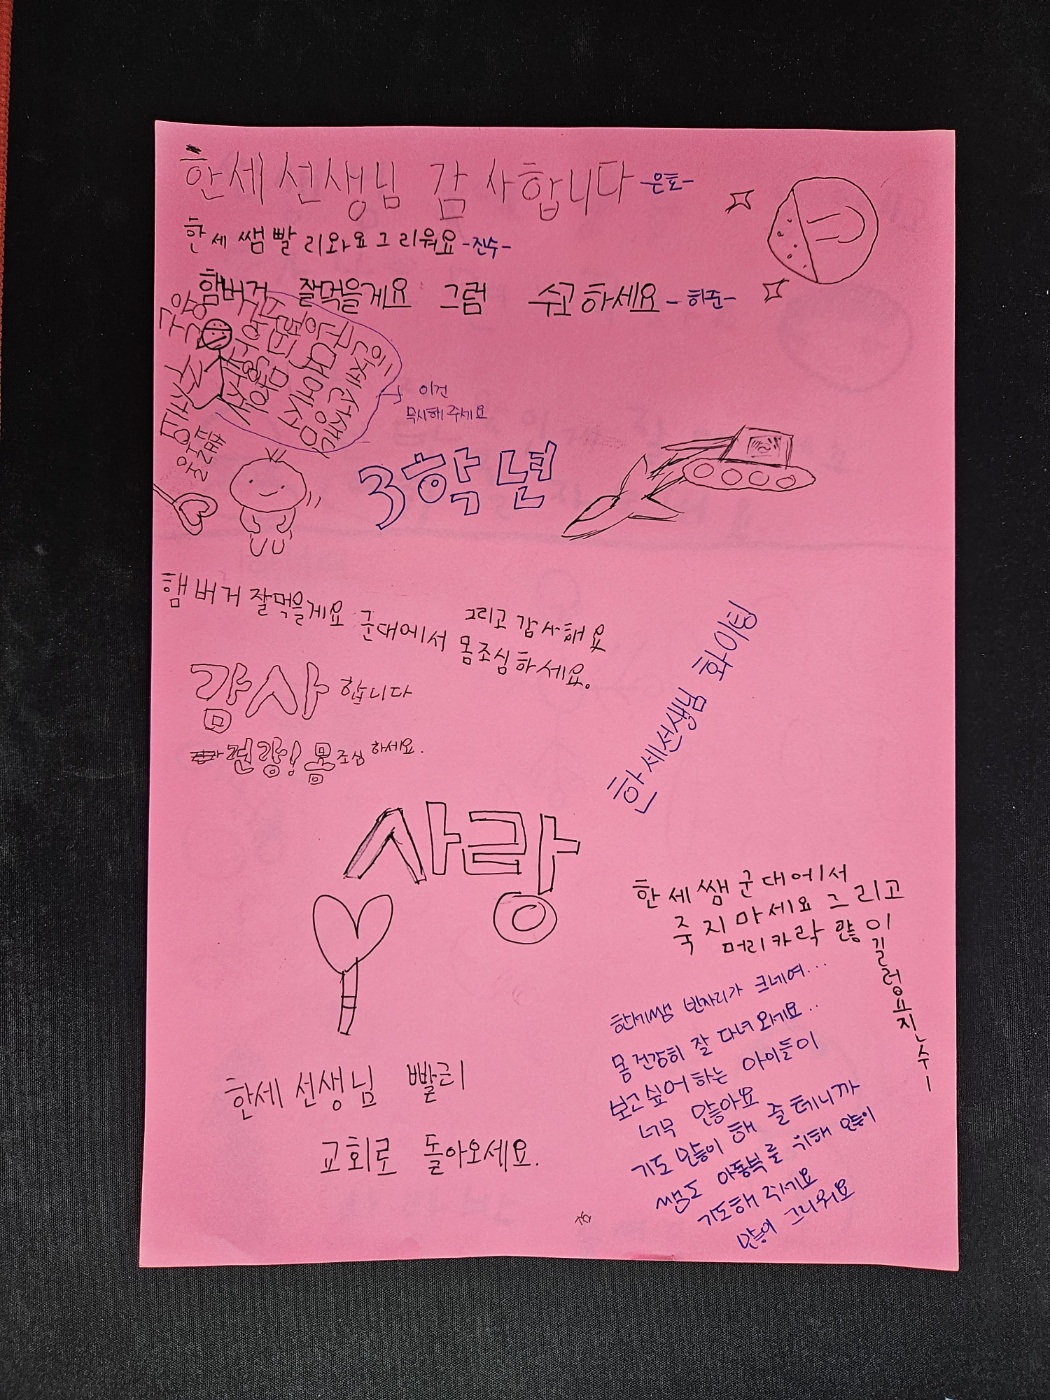 한세선생님 감사합니다 -은호-
한세 쌤 빨리와요 그리워요 -진수-
햄버거 잘먹을게요 그럼 수고하세요 -허준-
이건
무시해 주세요
3학년
햄버거 잘먹을게요 그리고 감사해요
군대에서 몸조심하세요.
감사 합니다
건강! 몸조심하세요.
한세선생님 화이팅
사랑
한세쌤 군대에서
죽지마세요 그리고
머리카락 많이
길렁요 진수
한세쌤 빈자리가 크네여...
몸 건강히 잘 다녀 와게요..
보고싶어 하는 아이들이
너무 많아요
기도 많이 해 줄테니까
쌤도 아동부를 위해 많이
기도해 주세요
많이 그리워요
한세 선생님 빨리
교회로 돌아오세요.